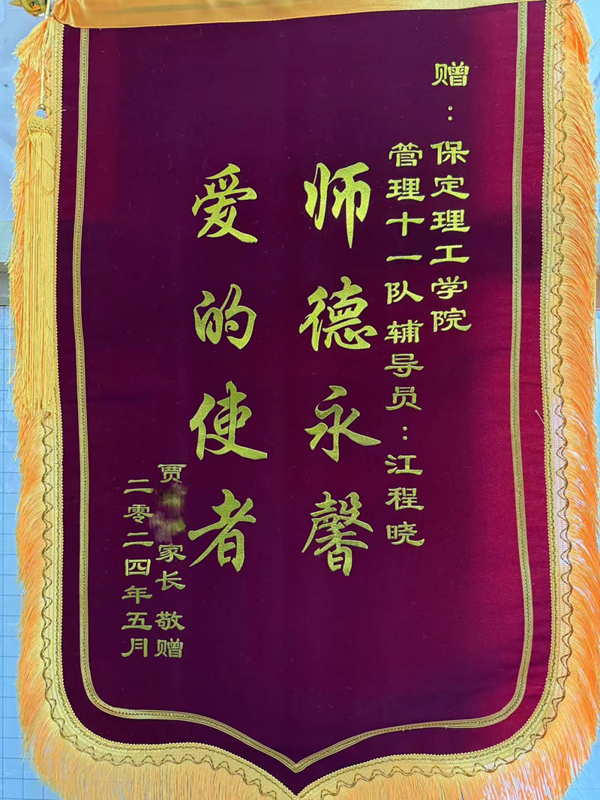 赠：保定理工学院
管理十一队辅导员：江程晓
师德永馨
爱的使者
贾 家长 敬赠
二零二四年五月